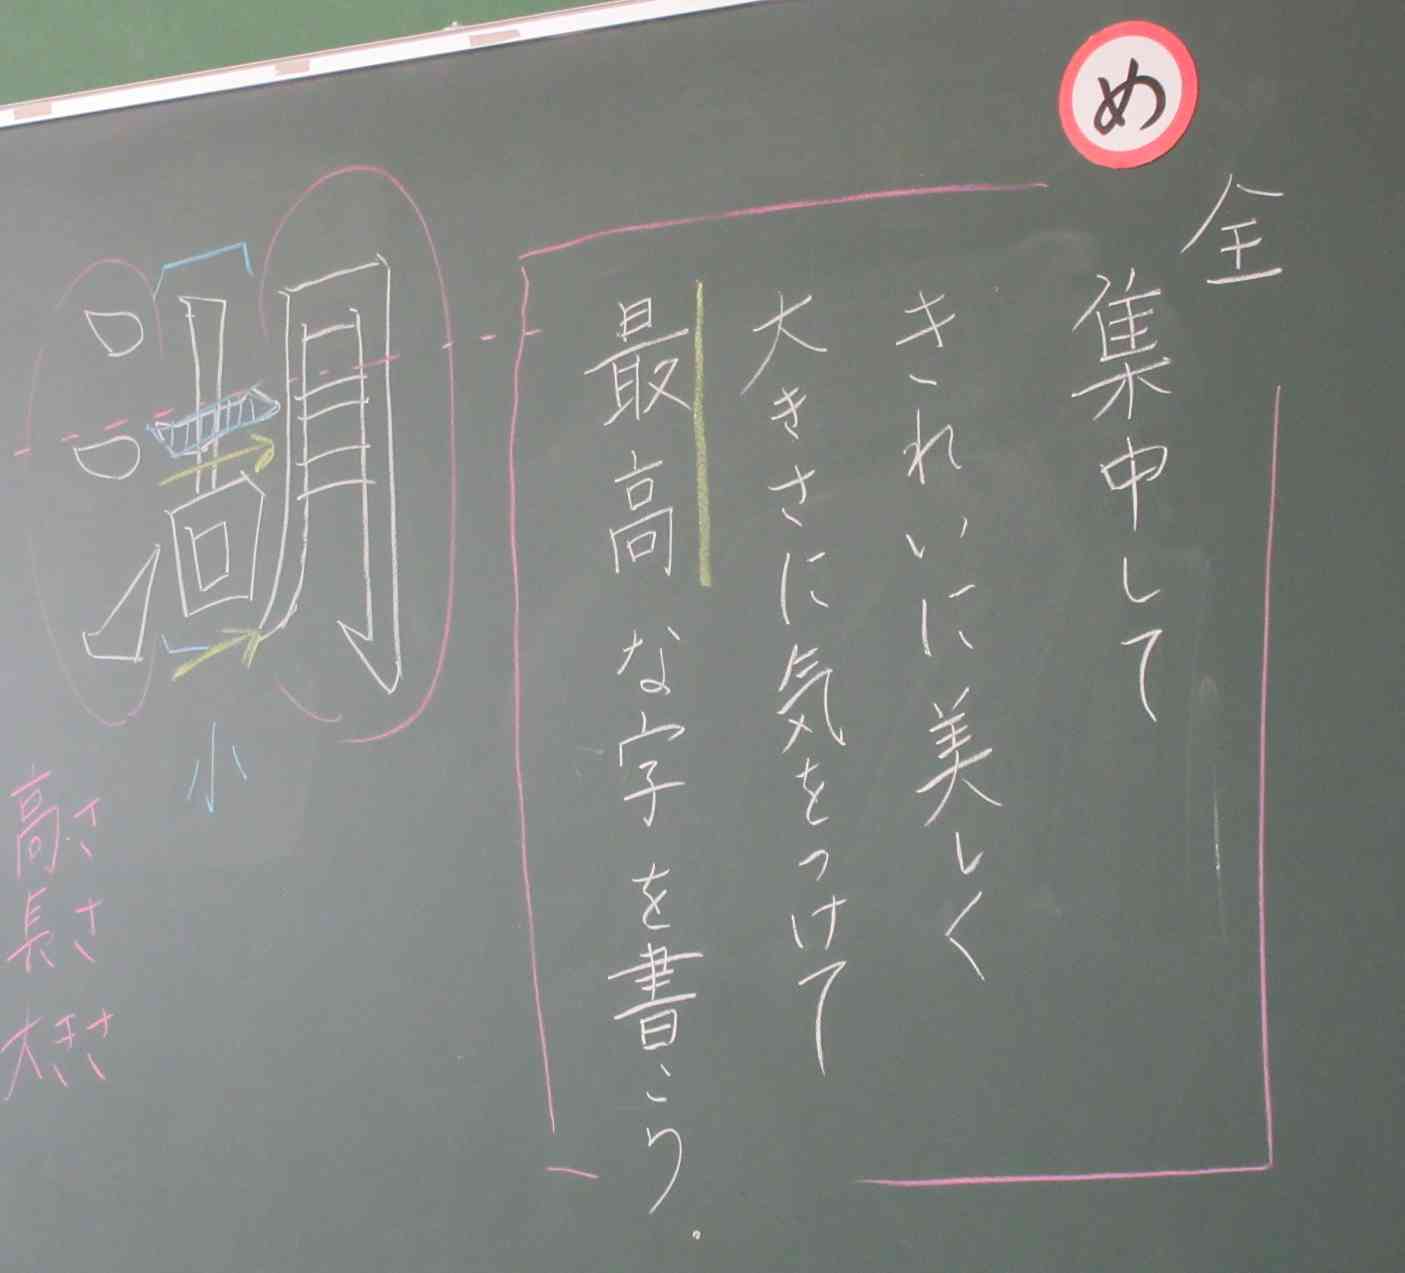 め
全
集中して
きれいに美しく
大きさに気をつけて
最高な字を書こう。
湖
小
高さ
長さ
大きさ